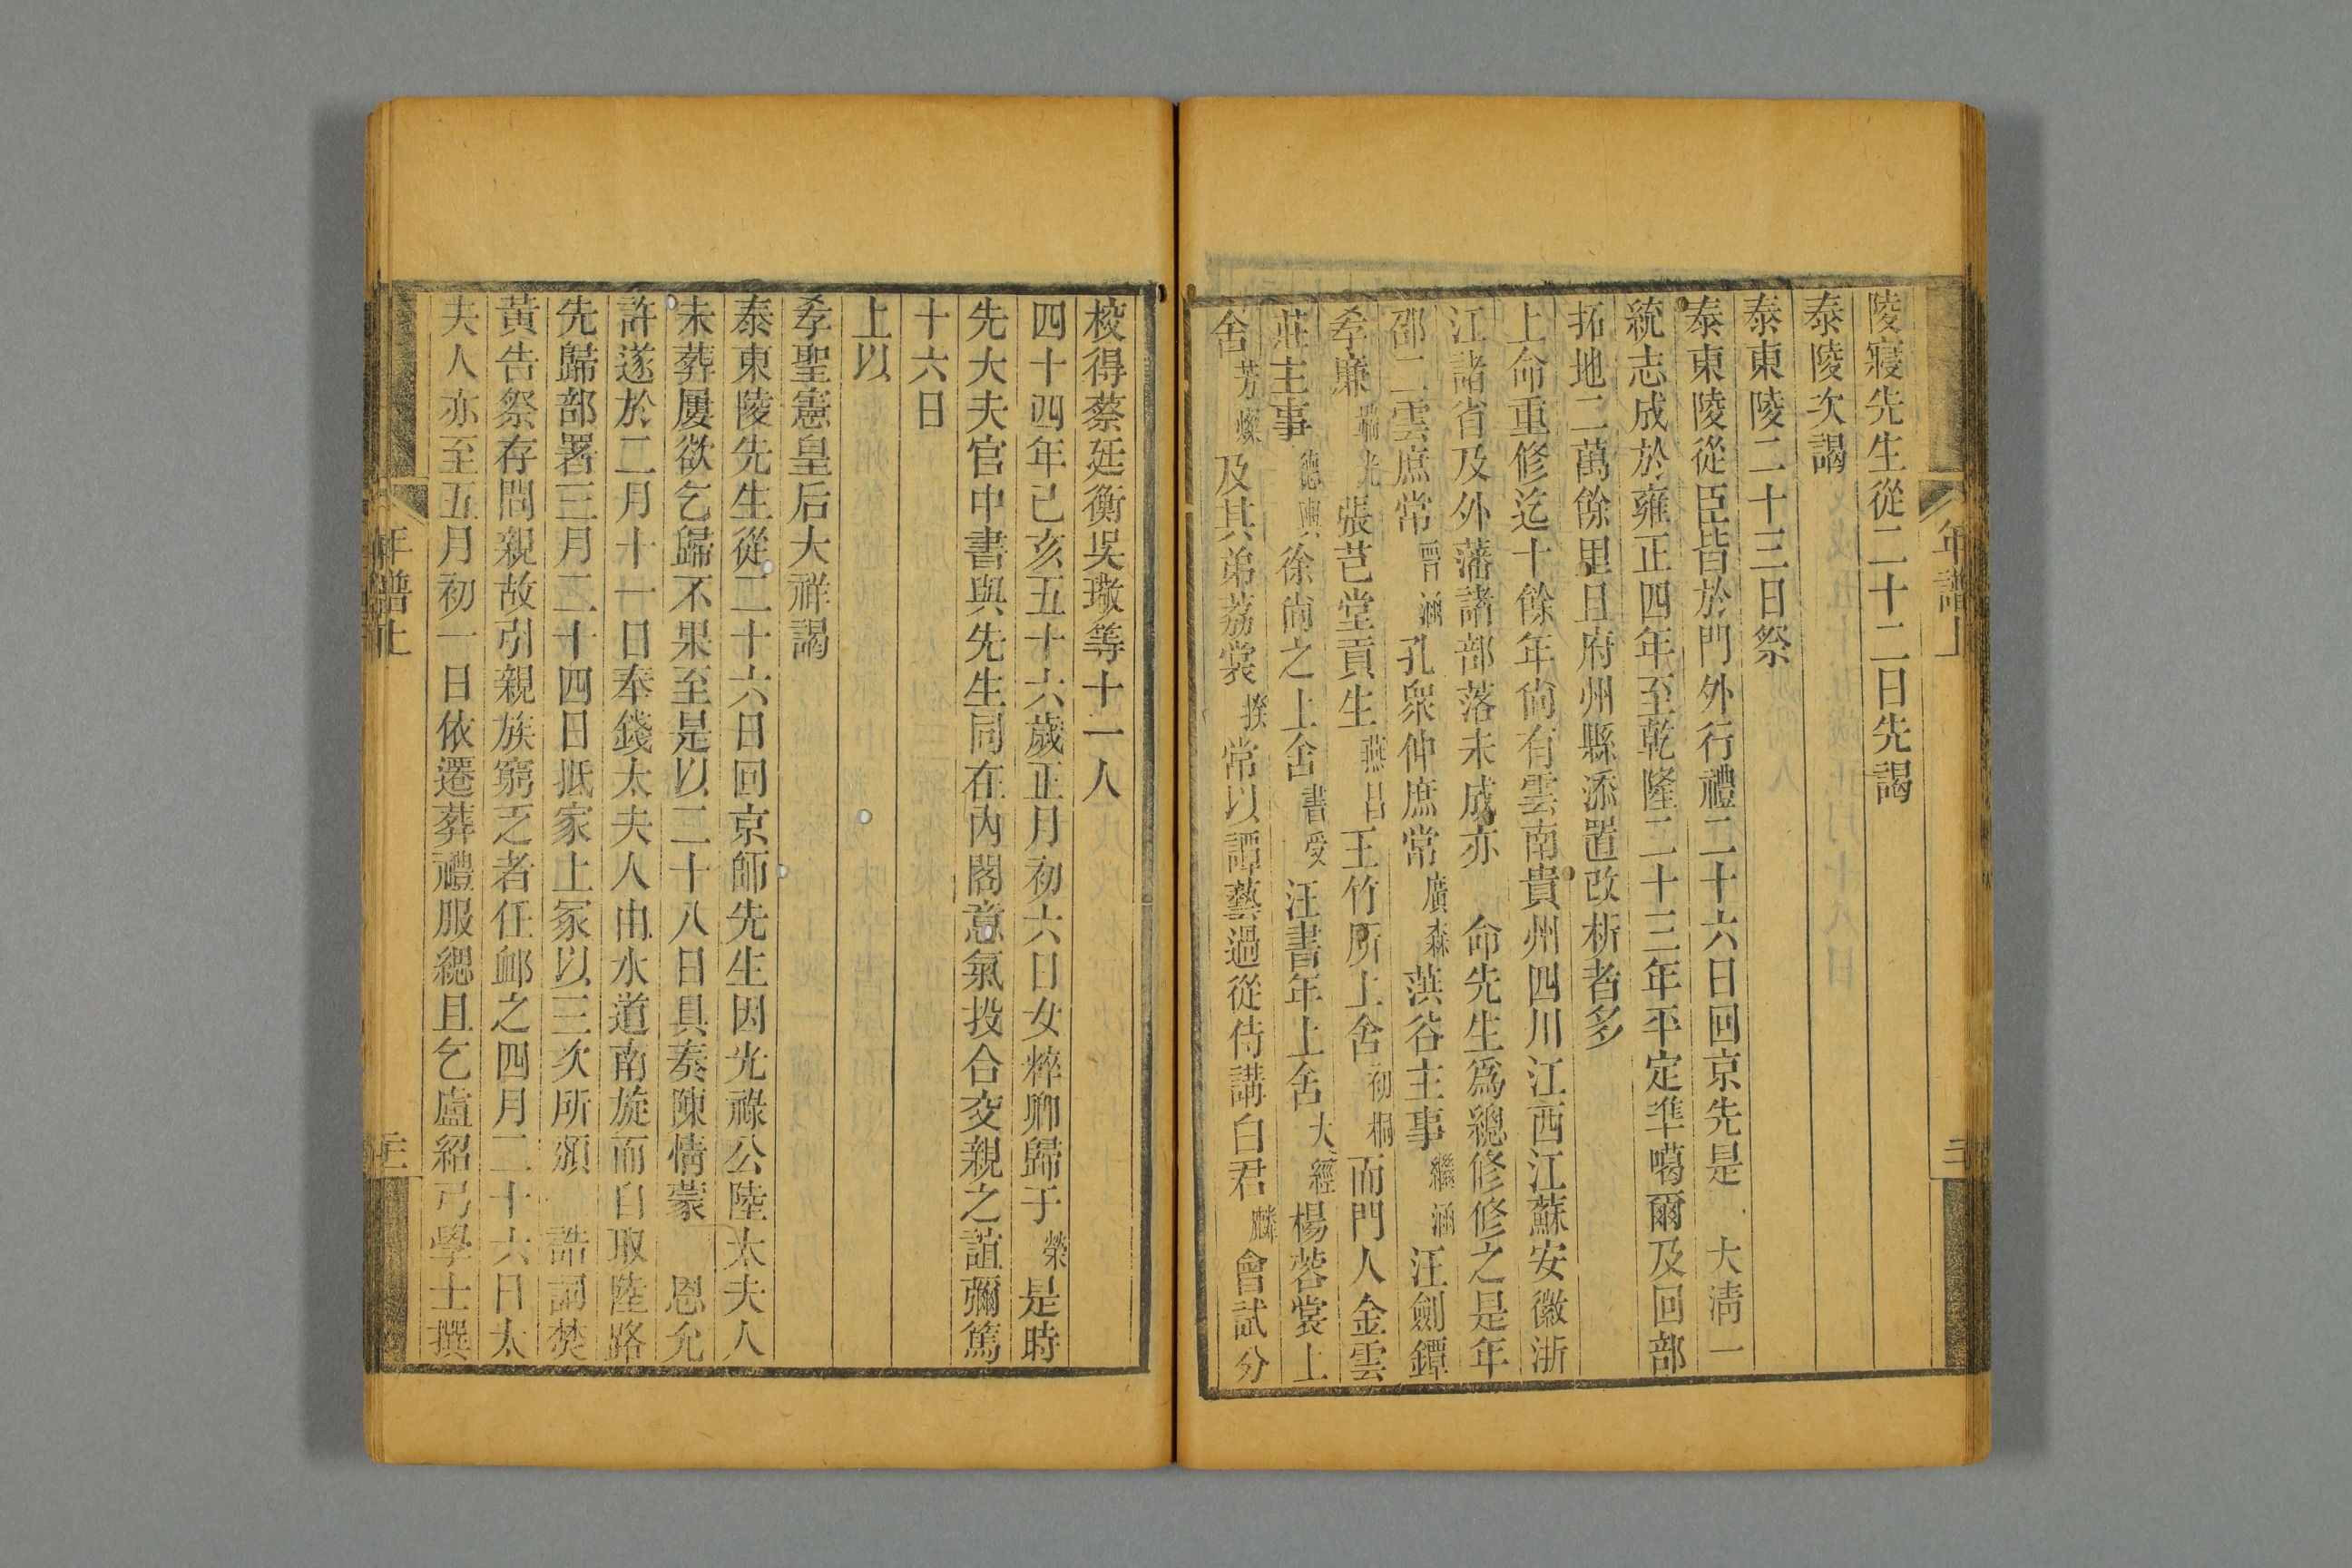 陵寢先生從二十二日先謁
泰陵次謁
泰東陵二十三日祭
泰東陵從臣皆於門外行禮二十六日回京先是 大淸一
統志成於雍正四年至乾隆二十三年平定準噶爾及回部
拓地二萬餘里且府州縣添置改析者多
上命重修迄十餘年尙有雲南貴州四川江西江蘇安徽浙
江諸省及外藩諸部落未成亦 命先生爲總修修之是年
邵二雲庶常晉涵孔衆仲庶常廣森葓谷主事繼涵汪劍鐔
孝廉端光張芑堂貢生燕昌王竹所上舍初桐而門人金雲
莊主事德輿徐尙之上舍書受汪書年上舍大經楊蓉裳上
舍芳燦及其弟荔裳揆常以譚藝過從侍講白君麟會試分
校得蔡廷衡吳璥等十一人
四十四年己亥五十六歲正月初六日女粹卿歸于榮是時
先大夫官中書與先生同在內閣意氣投合交親之誼彌篤
十六日
上以
孝聖憲皇后大祥謁
泰東陵先生從二十六日回京師先生因光祿公陸太夫人
未葬屢欲乞歸不果至是以二十八日具奏陳情蒙 恩允
許遂於二月十一日奉錢太夫人由水道南旋而自取陸路
先歸部署三月二十四日抵家上冢以三次所頒 誥詞焚
黃告祭存問親故引親族窮乏者任䘏之四月二十六日太
夫人亦至五月初一日依遷葬禮服緦且乞盧紹弓學士撰
年譜上